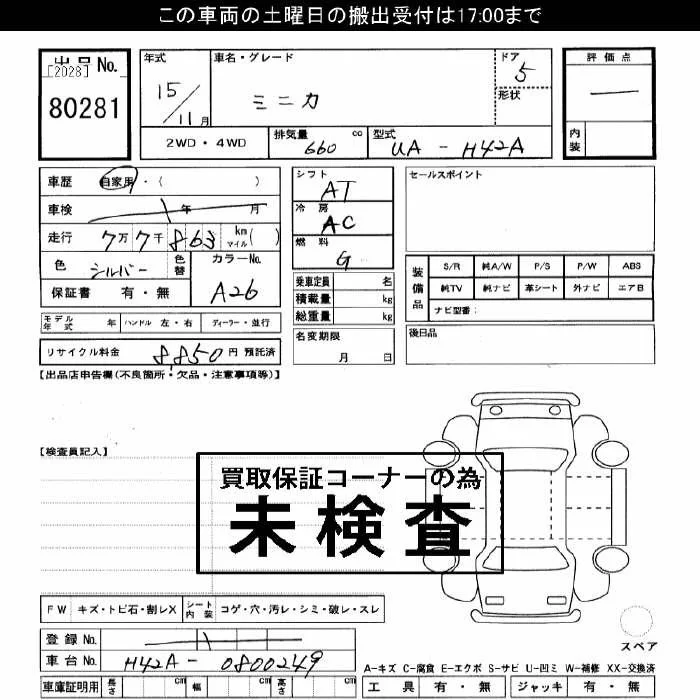 この車両の土曜日の搬出受付は17:00まで
出品 No.
[2028]
80281
年式 15/11月
車名・グレード ミニカ
ドア 5
形状
評価点 —
内装
2WD・4WD
排気量 660 cc
型式 UA - H42A
車歴 自家用・( )
車検 年 月
走行 7万7千863 km マイル( )
色 シルバー 色替
カラーNo. A26
保証書 有・無
モデル年式 年 ハンドル 左・右 ディーラー・並行
リサイクル料金 8,850 円 預託済
シフト AT
冷房 AC
燃料 G
乗車定員 名
積載量 kg
総重量 kg
名変期限 月 日
セールスポイント
装備品
S/R 純A/W P/S P/W ABS
純TV 純ナビ 革シート 外ナビ エアB
ナビ型番:
後日品
【出品店申告欄(不良箇所・欠品・注意事項等)】
【検査員記入】
買取保証コーナーの為
未検査
FW キズ・トビ石・割レX シート内装 コゲ・穴・汚レ・シミ・破レ・スレ
登録 No.
車台 No. H42A - 0800249
車庫証明用 長さ cm 幅 cm 高さ cm
スペア
A-キズ C-腐食 E-エクボ S-サビ U-凹ミ W-補修 XX-交換済
工具 有・無 ジャッキ 有・無